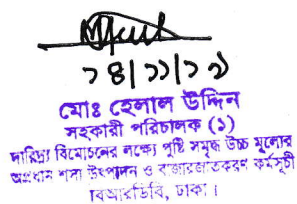 ১৪/১১/১৯
মোঃ হেলাল উদ্দিন
সহকারী পরিচালক (১)
দারিদ্র্য বিমোচনের লক্ষ্যে পুষ্টি সমৃদ্ধ উচ্চ মূল্যের
অপ্রধান শস্য উৎপাদন ও বাজারজাতকরণ কর্মসূচী
বিআরডিবি, ঢাকা।